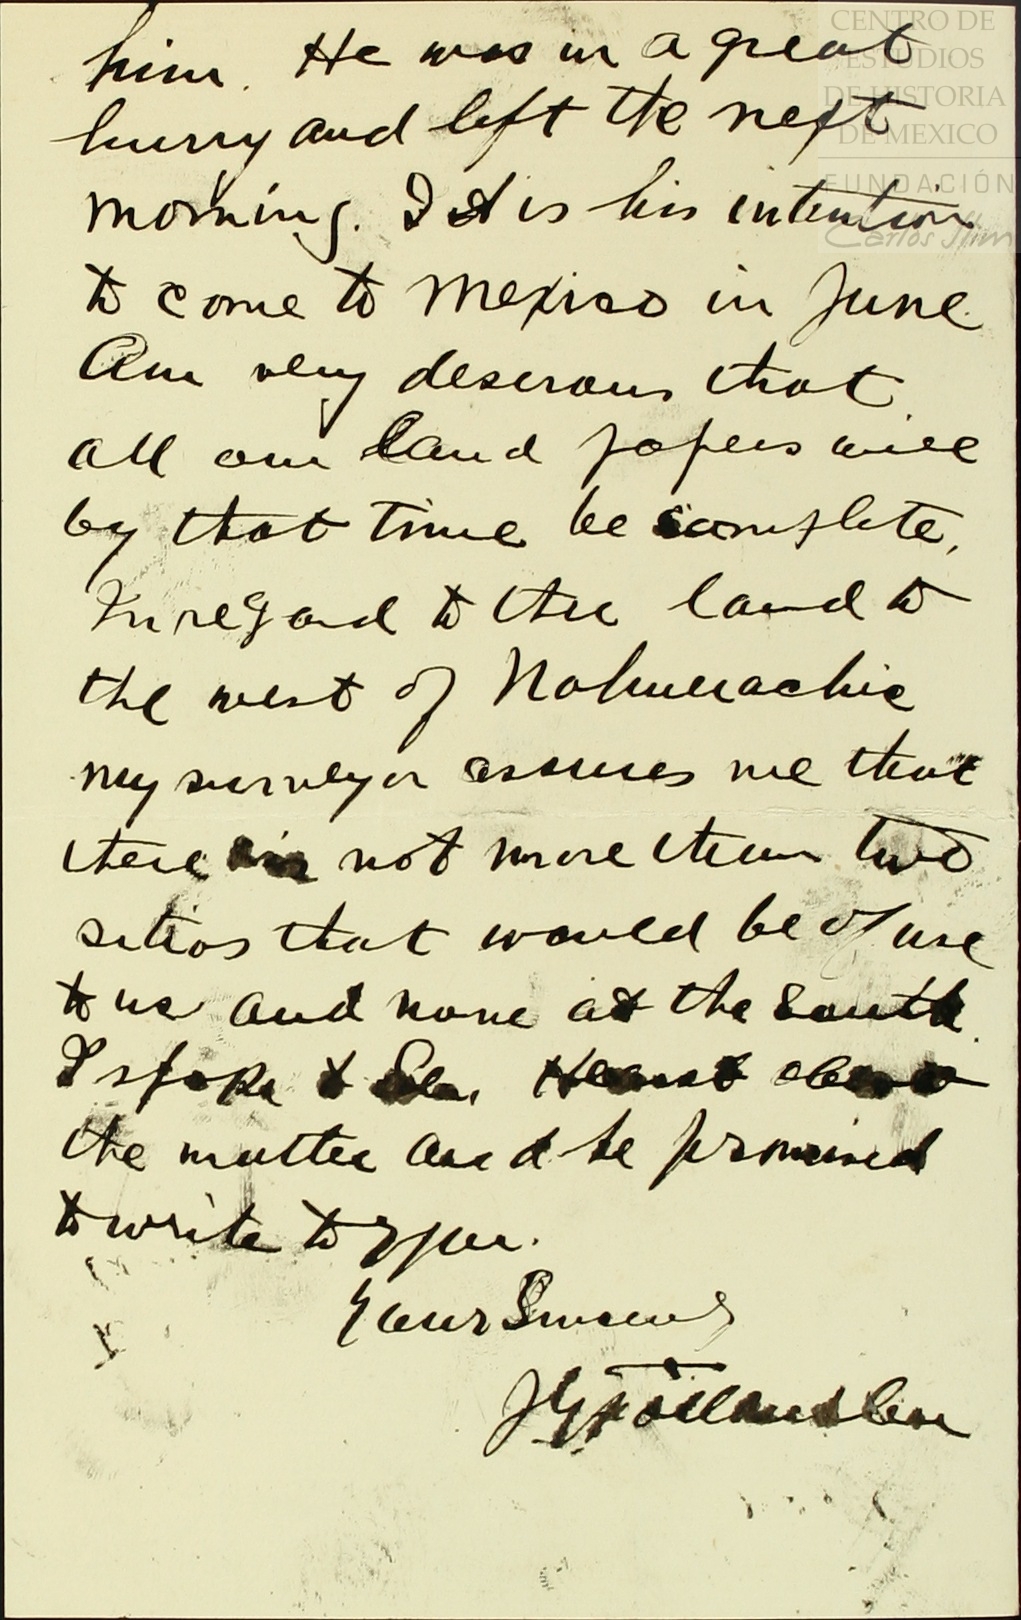 CENTRO DE
ESTUDIOS
DE HISTORIA
DE MEXICO
FUNDACIÓN
Carlos Slim
him. He was in a great
hurry and left the next
morning. It is his intention
to come to Mexico in June.
Am very deserous that
all our land papers will
by that time be complete.
In regard to the land to
the west of Nahuerachic
my surveyor assures me that
there is not more than two
sitios that would be of use
to us and none at the south.
I spoke to Sen. Hearst about
the matter and he promised
to write to you.
Your Sincerely